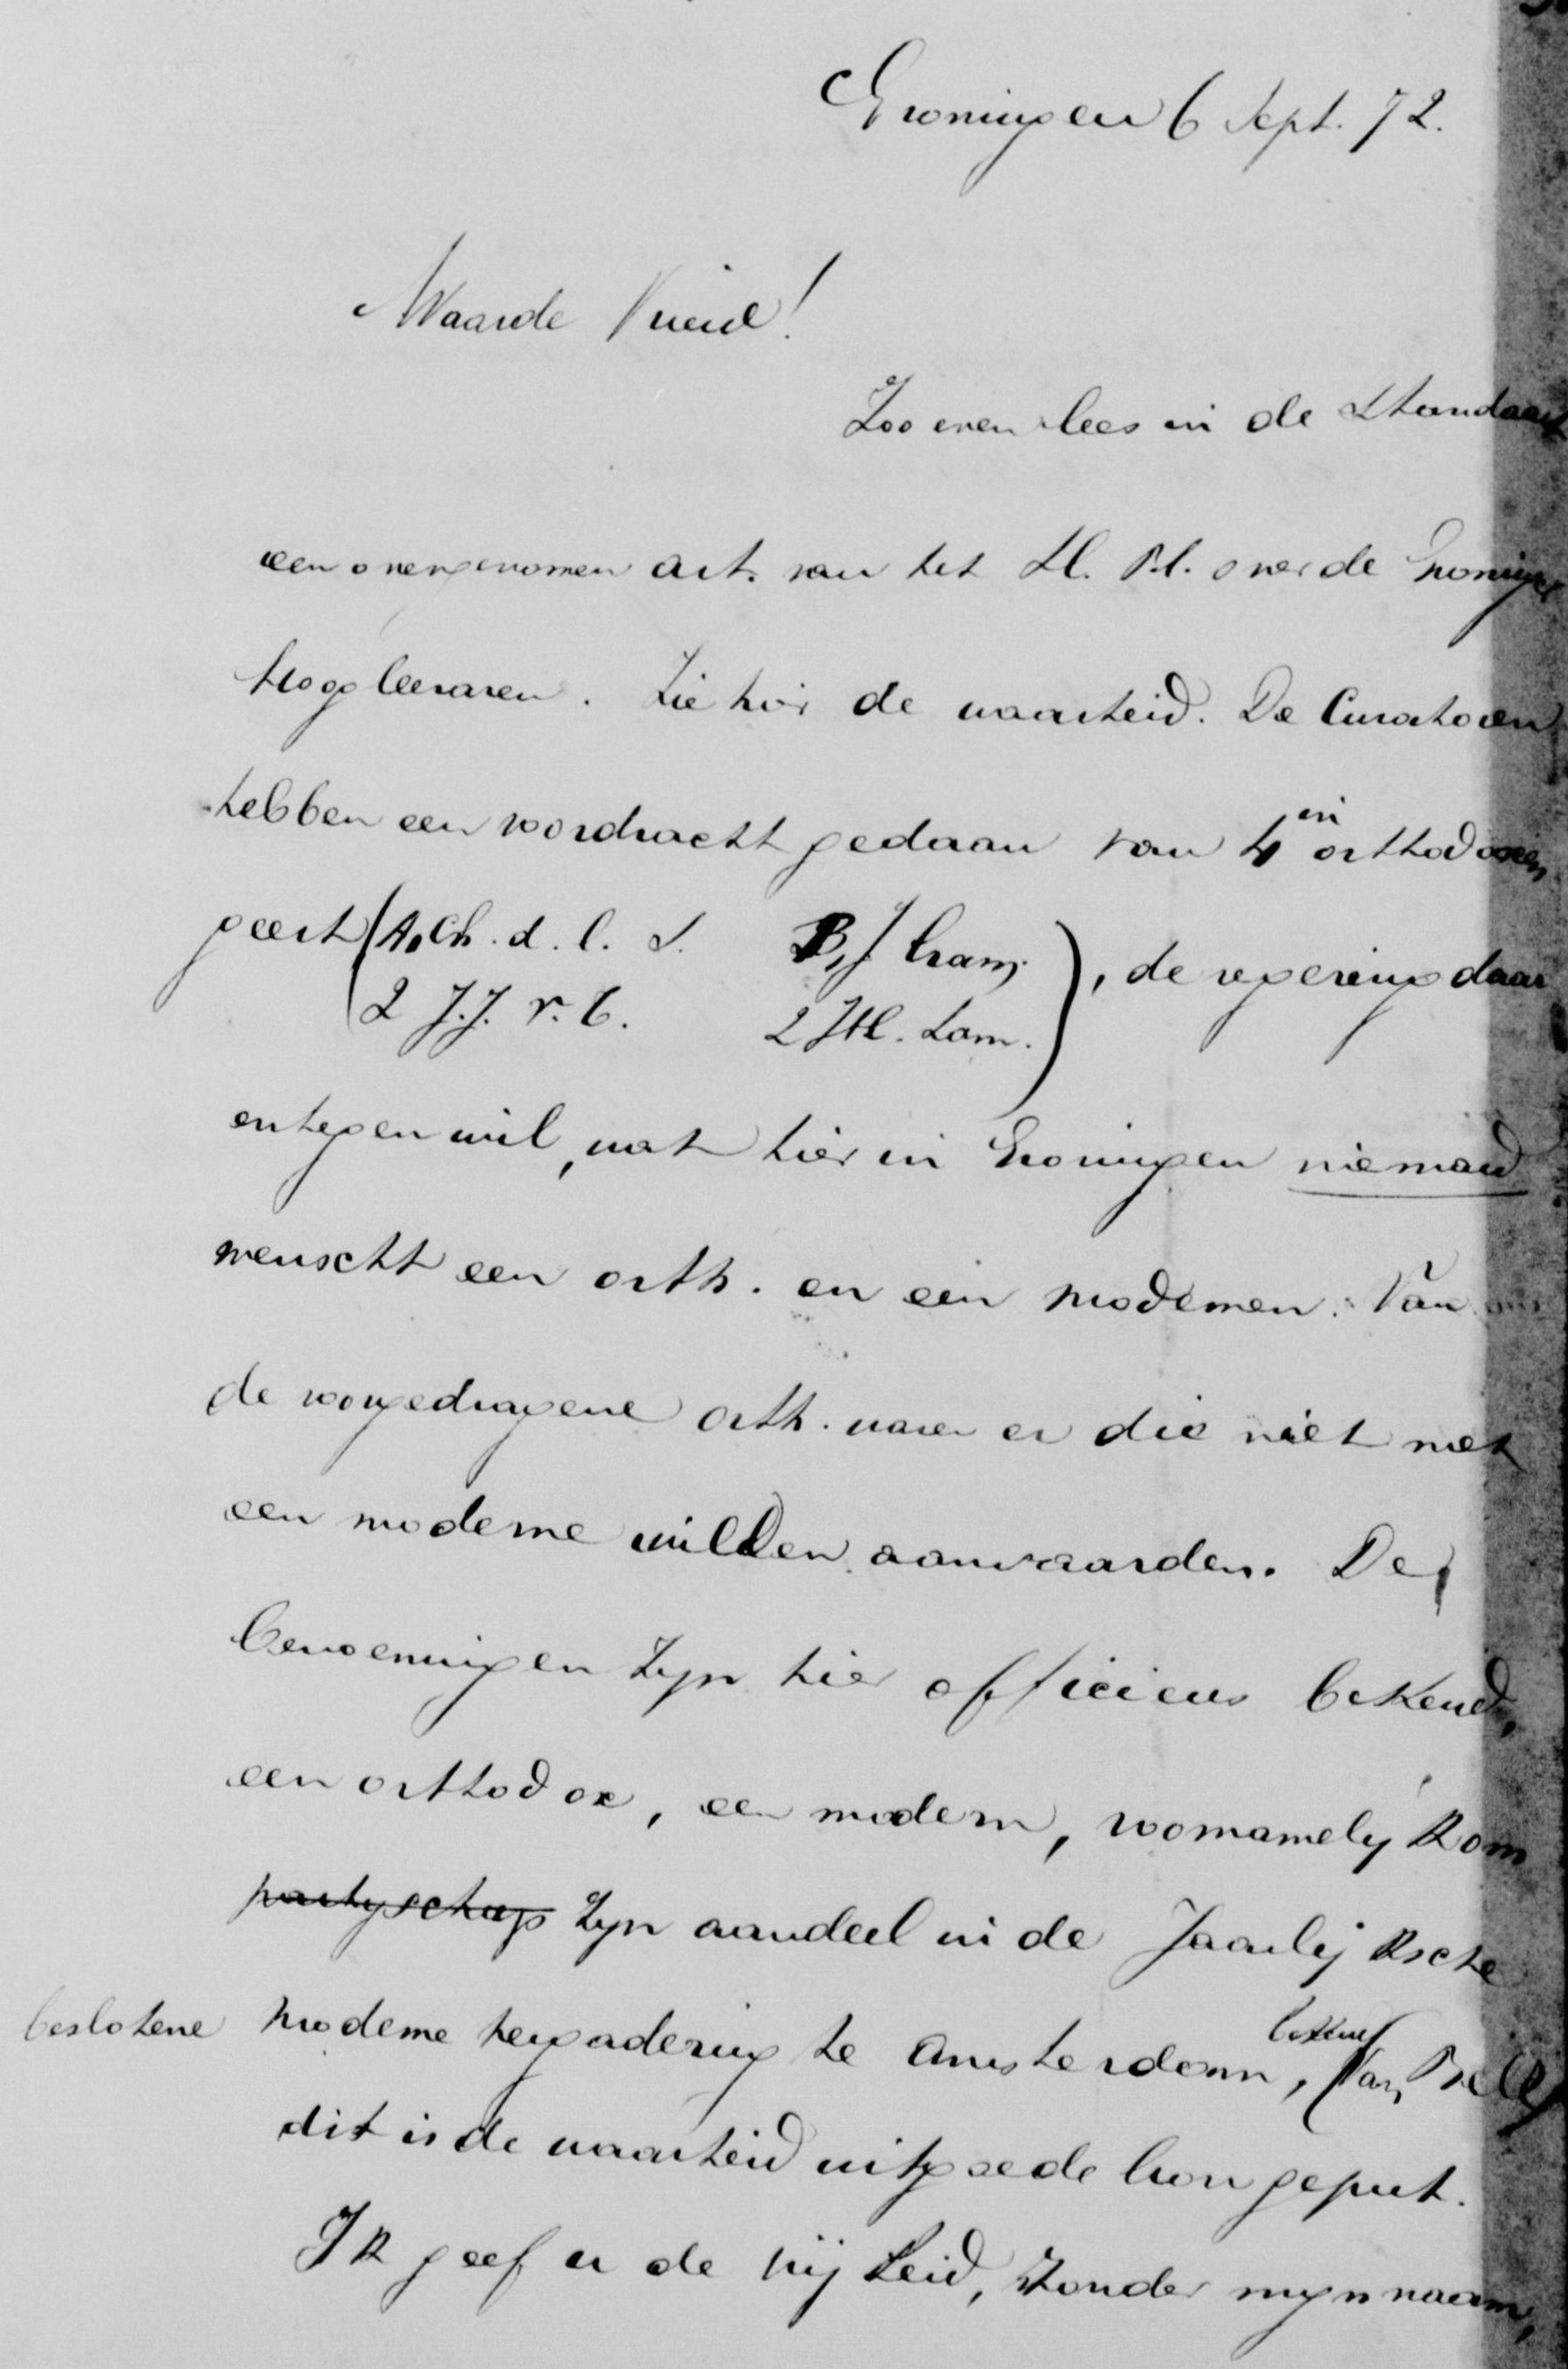 Groningen 6 Sept. 72.
Waarde Vriend!
Zoo even lees in de Standaard
een overgenomen art. van het H. Bl. over de Groninger
Hoogleeraren. Zie hier de waarheid. De Curatoren
hebben een voordracht gedaan van 4 in orthodoxen
geest (A, Ch. d. l. S. B, J Cram.
2 J.J. v. T. 2 JH. Lam.), de regering daar
entegen wil, wat hier in Groningen niemand
wenscht een orth. en een modernen. Van
de voorgedragene orth. waren er die niet met
een moderne wilden aanvaarden. De
benoemingen zyn hier officieus bekend,
een orthodox, een modern, voornamelij kom
partyschap zyn aandeel in de Jaarlijksche
beslotene moderne vergadering te Amsterdam, bekend (Van Bell)
dit is de waarheid uit goede bron geput.
Ik geef u de vrijheid, zonder myn naam,